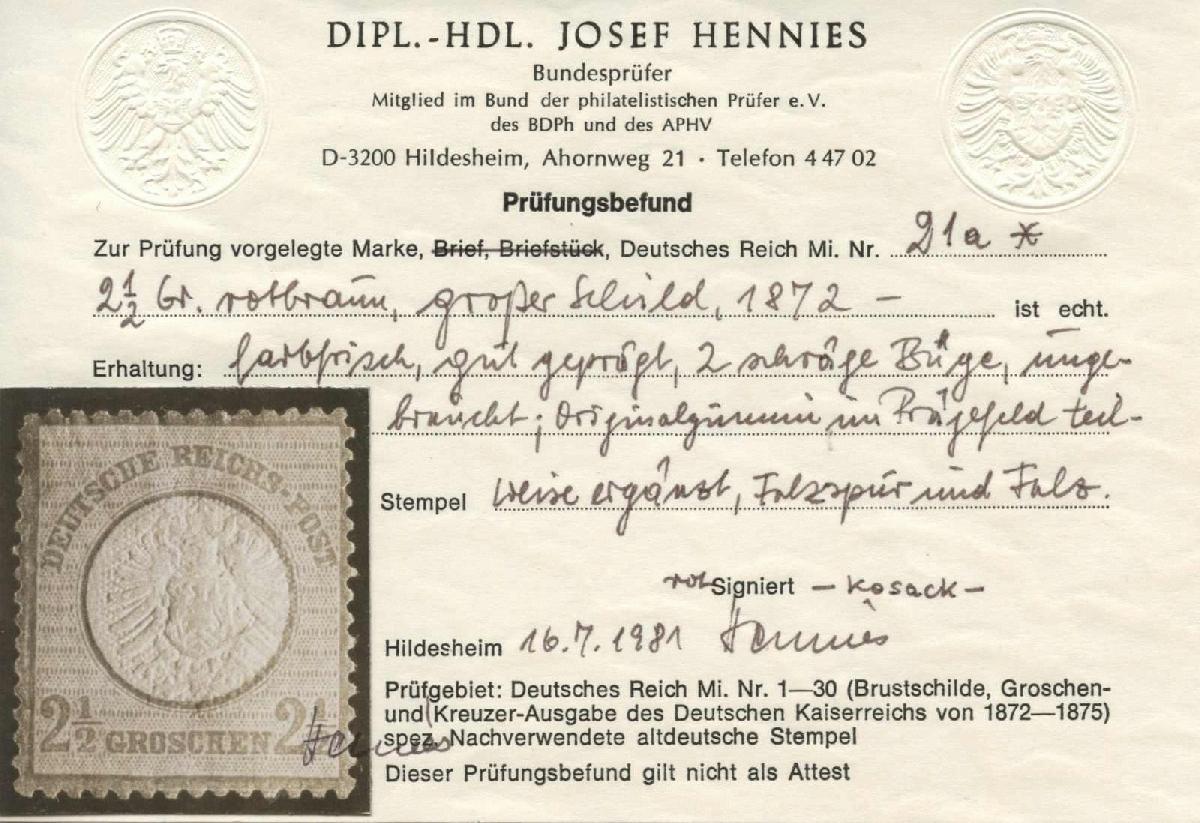 DIPL.-HDL. JOSEF HENNIES
Bundesprüfer
Mitglied im Bund der philatelistischen Prüfer e.V.
des BDPh und des APHV
D-3200 Hildesheim, Ahornweg 21 · Telefon 4 47 02
Prüfungsbefund
Zur Prüfung vorgelegte Marke, Brief, Briefstück, Deutsches Reich Mi. Nr. 21a *
2½ Gr. rotbraun, großer Schild, 1872 – ist echt.
Erhaltung: farbfrisch, gut geprägt, 2 schräge Büge, unge-
braucht; Originalgummi im Prägefeld teil-
Stempel weise ergänzt, Falzspur und Falz.
rot Signiert – Kosack –
Hildesheim 16.7.1981 Hennies
Prüfgebiet: Deutsches Reich Mi. Nr. 1—30 (Brustschilde, Groschen-
und Kreuzer-Ausgabe des Deutschen Kaiserreichs von 1872—1875)
spez. Nachverwendete altdeutsche Stempel
Dieser Prüfungsbefund gilt nicht als Attest
DEUTSCHE REICHS-POST
2½ GROSCHEN 2½
Hennies